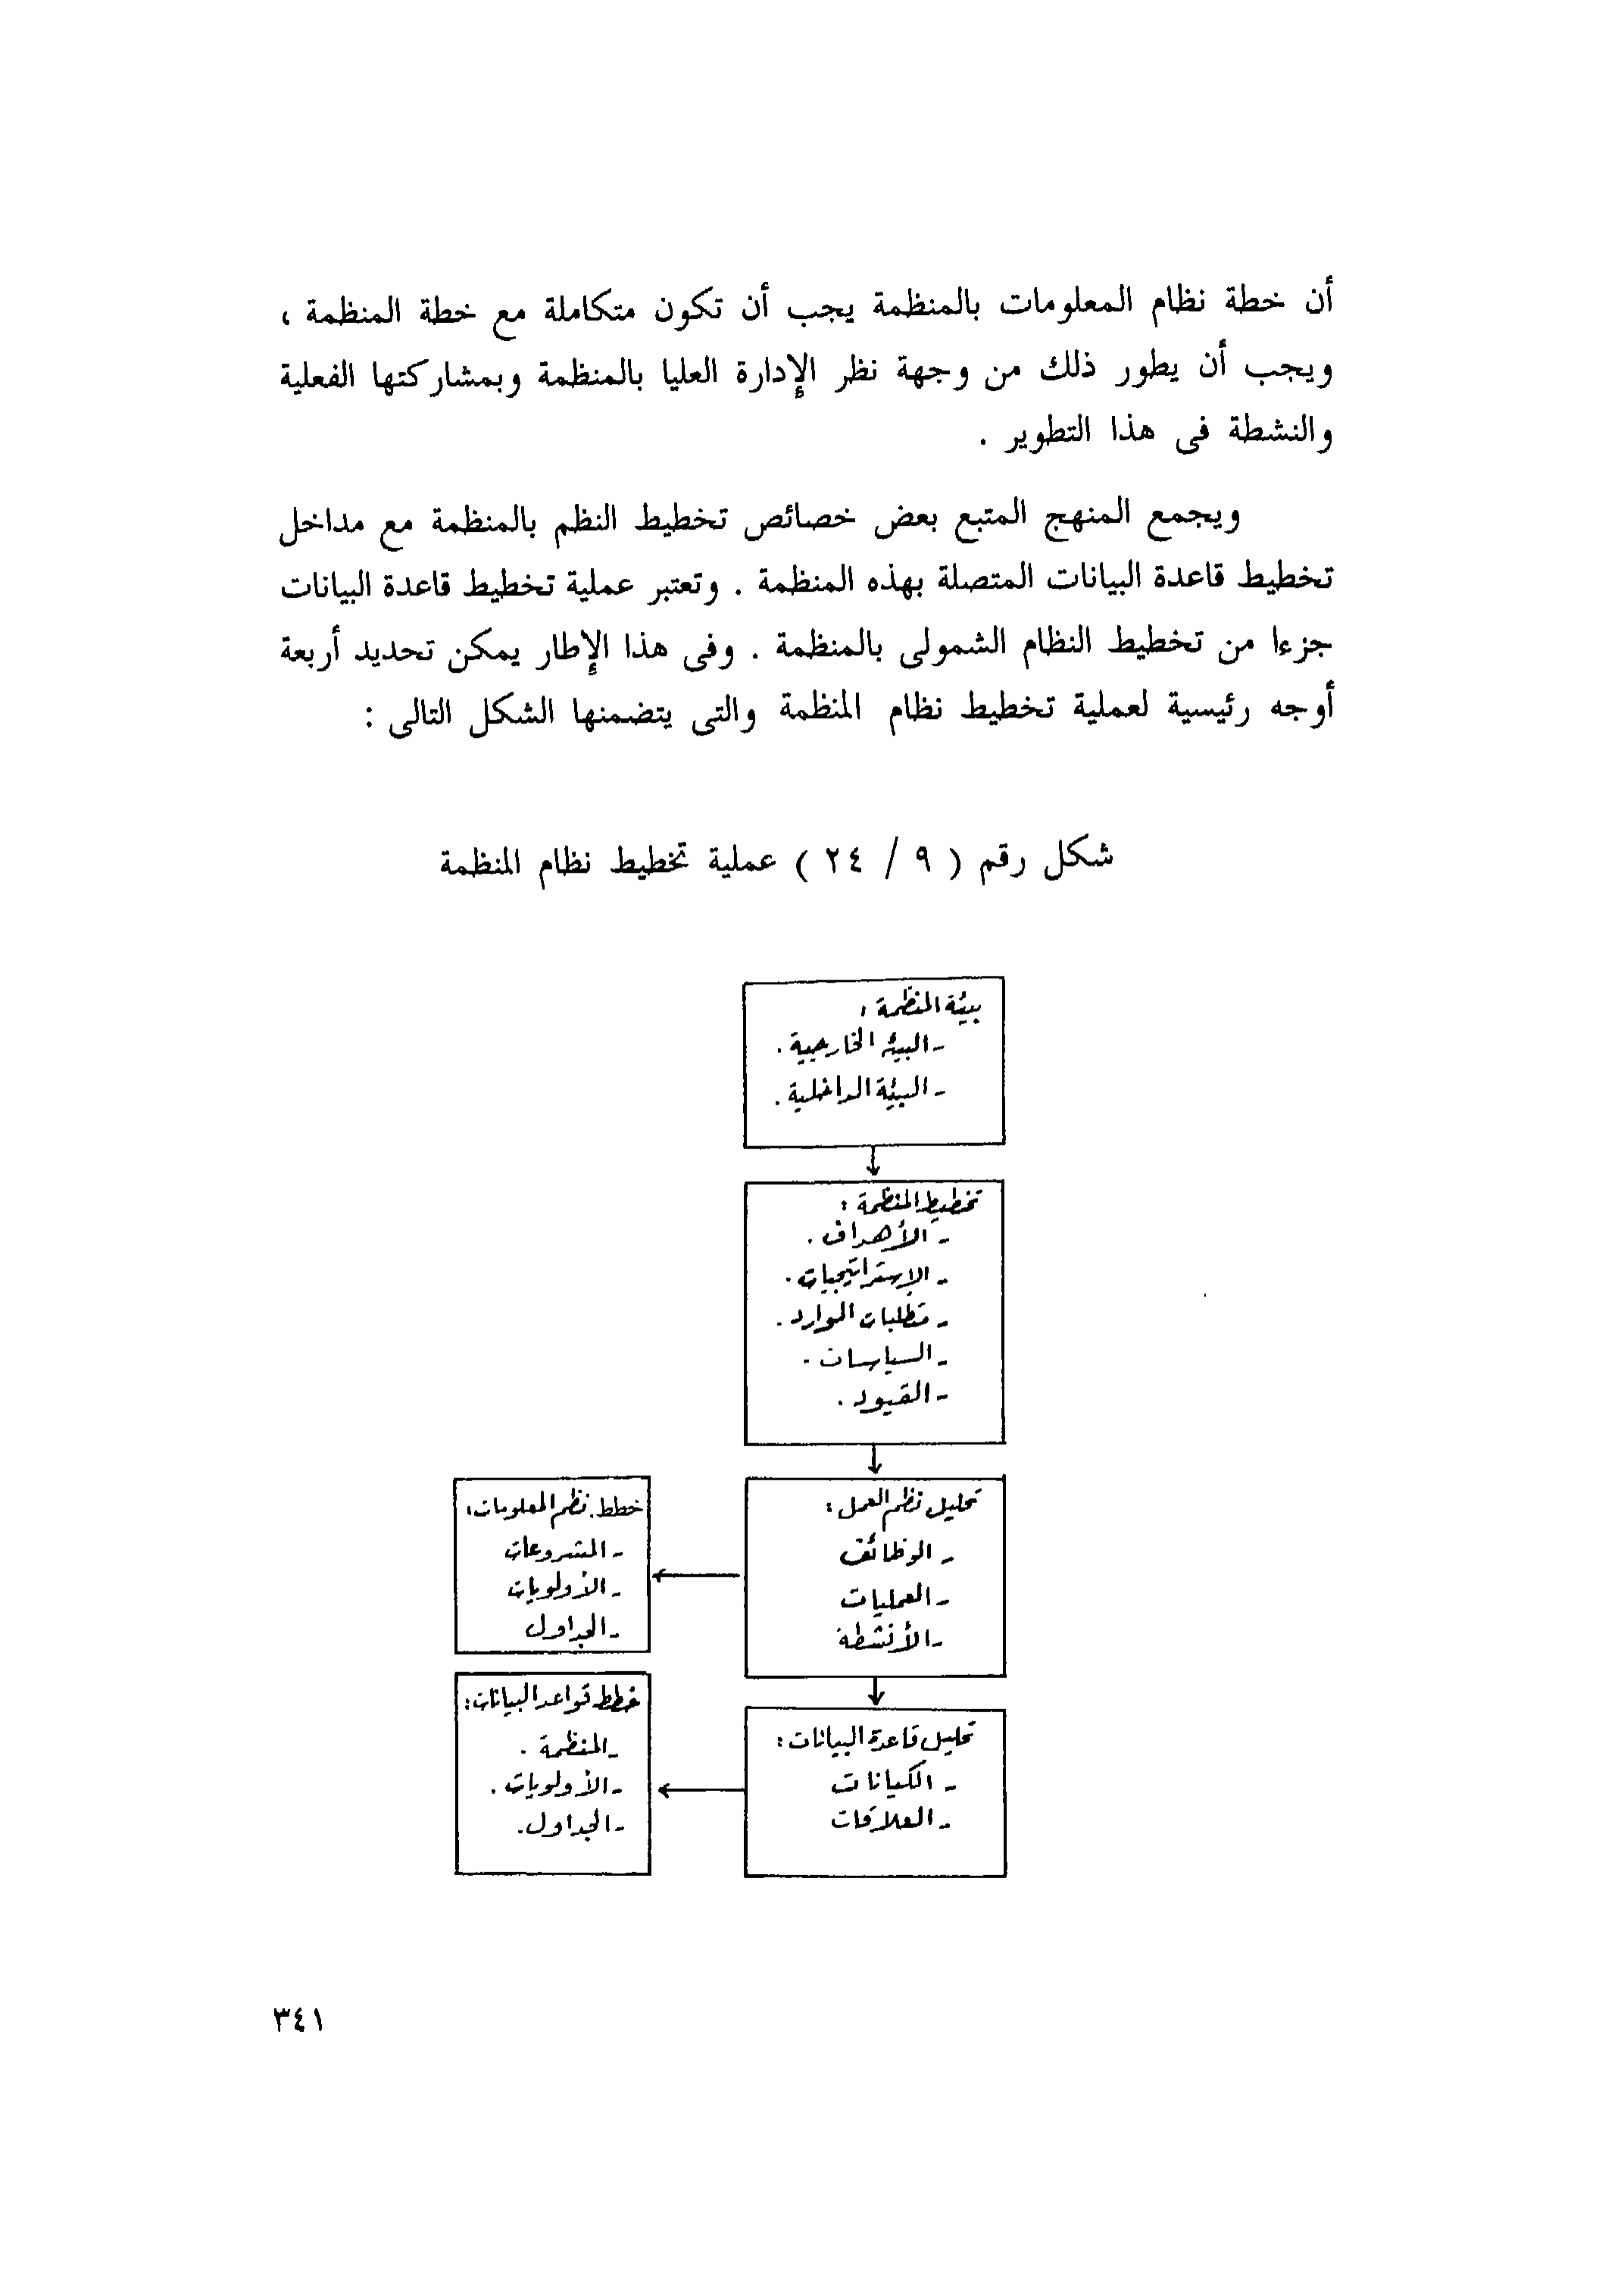 أن خطة نظام المعلومات بالمنظمة يجب أن تكون متكاملة مع خطة المنظمة ،
ويجب أن يطور ذلك من وجهة نظر الإدارة العليا بالمنظمة وبمشاركتها الفعلية
والنشطة فى هذا التطوير .
ويجمع المنهج المتبع بعض خصائص تخطيط النظم بالمنظمة مع مداخل
تخطيط قاعدة البيانات المتصلة بهذه المنظمة . وتعتبر عملية تخطيط قاعدة البيانات
جزءا من تخطيط النظام الشمولى بالمنظمة . وفى هذا الإطار يمكن تحديد أربعة
أوجه رئيسية لعملية تخطيط نظام المنظمة والتى يتضمنها الشكل التالى :
شكل رقم ( ٩ / ٢٤ ) عملية تخطيط نظام المنظمة
بيئة المنظمة :
- البيئة الخارجية .
- البيئة الداخلية .
تخطيط المنظمة :
- الأهداف .
- الإستراتيجيات .
- متطلبات الموارد .
- السياسات .
- القيود .
تحليل نظم العمل :
- الوظائف
- العمليات
- الأنشطة
خطط نظم المعلومات :
- المشروعات
- الأولويات
- الجداول
تحليل قاعدة البيانات :
- الكيانات
- العلاقات
خطط قواعد البيانات :
- المنظمة .
- الأولويات .
- الجداول .
٣٤١